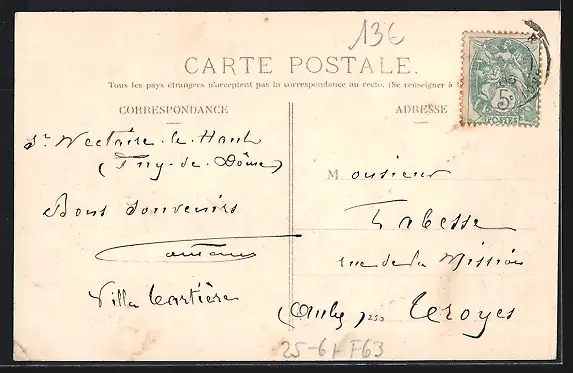 13€
CARTE POSTALE.
Tous les pays étrangers n'acceptent pas la correspondance au recto. (Se renseigner à
CORRESPONDANCE
ADRESSE
5c
POSTES
St Nectaire-le-Haut
(Puy-de-Dôme)
Bons souvenirs
Villa Cartière
Monsieur
Labesse
rue de la Mission
(Aube) Troyes
25-6+F63